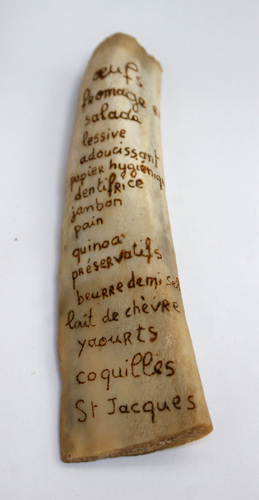 œufs
fromage
salade
lessive
adoucissant
papier hygiénique
dentifrice
jambon
pain
quinoa
préservatifs
beurre demi sel
lait de chèvre
yaourts
coquilles
St Jacques